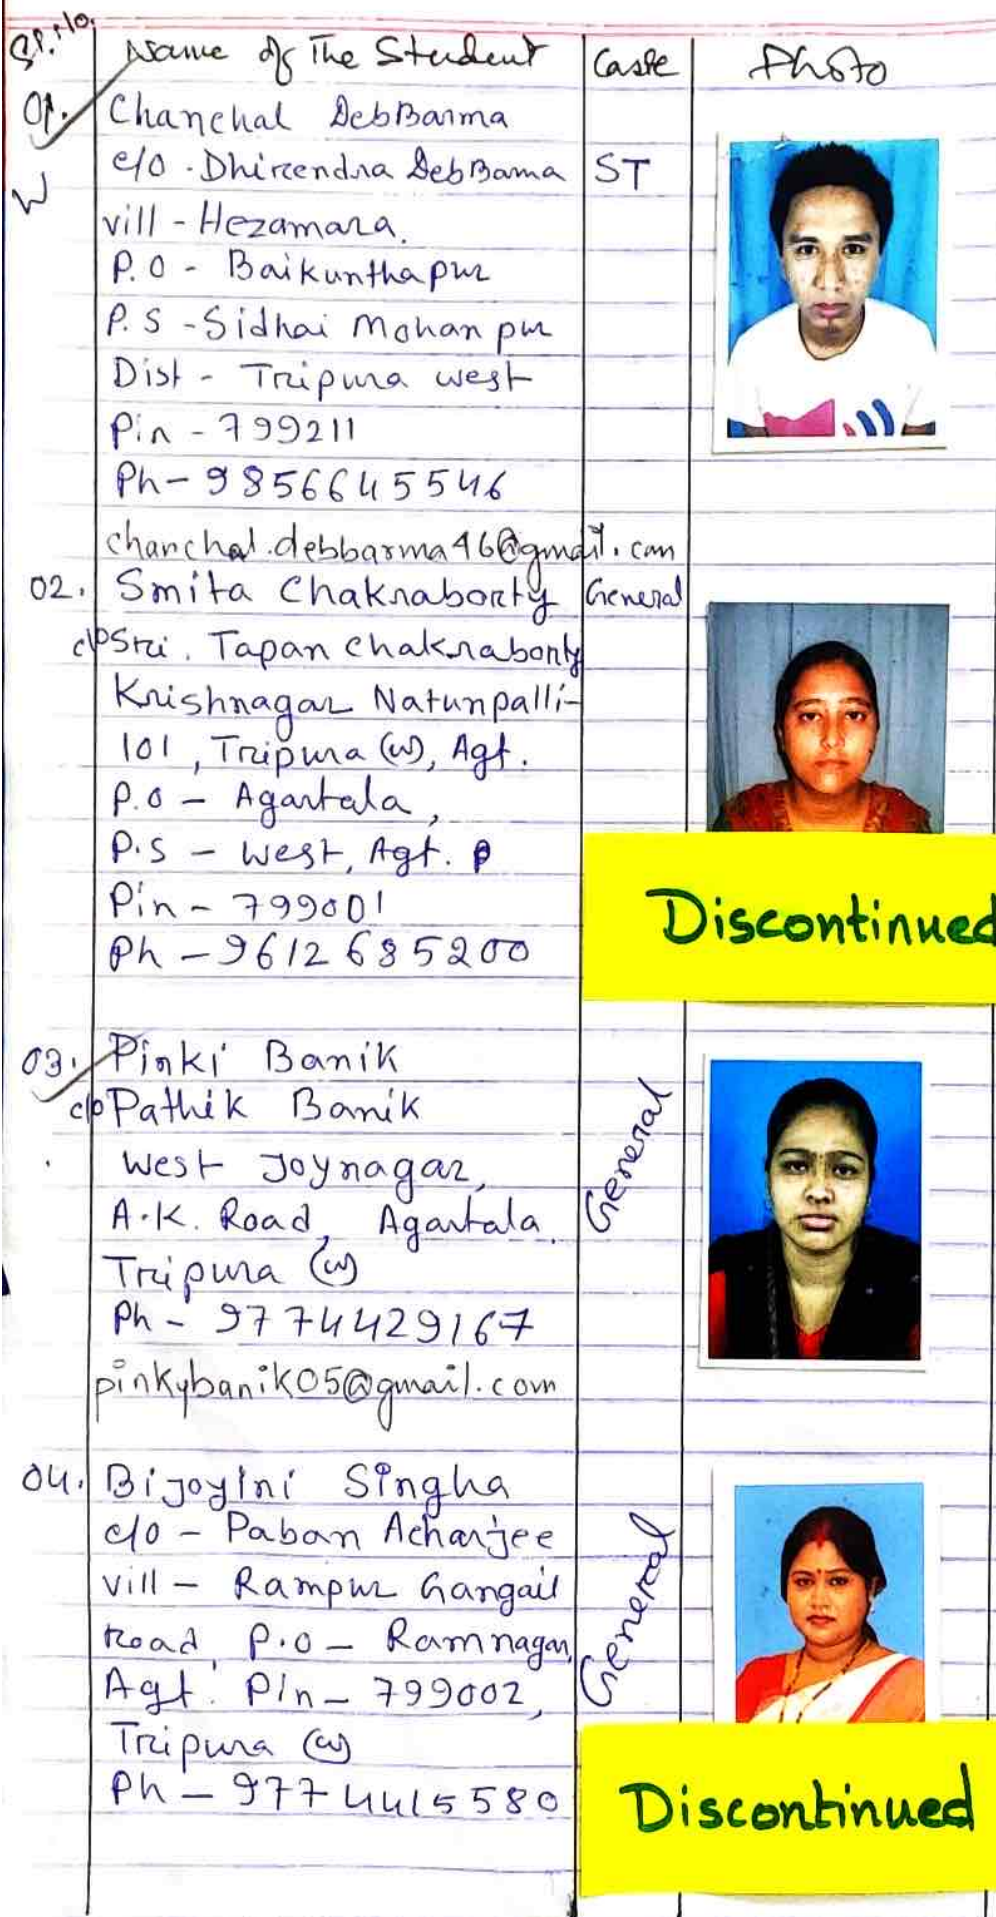 Sl. No. Name of The Student Caste Photo
01. Chanchal DebBarma
c/o. Dhirendra DebBarma ST
W
vill - Hezamara.
P.O - Baikunthapur
P.S - Sidhai Mohanpur
Dist - Tripura west
Pin - 799211
Ph - 9856645546
chanchal.debbarma46@gmail.com
02. Smita Chakraborty General
c/o Sri. Tapan Chakraborty
Krishnagar Natunpalli-
101, Tripura (W), Agt.
P.O - Agartala,
P.S - West, Agt. P
Pin - 799001
Discontinued
Ph - 9612685200
03. Pinki Banik
c/o Pathik Banik
General
West Joynagar,
A.K. Road, Agartala.
Tripura (W)
Ph - 9774429167
pinkybanik05@gmail.com
04. Bijoyini Singha
c/o - Paban Acharjee
General
vill - Rampur Gangail
Road, P.O - Ramnagar,
Agt. Pin - 799002,
Tripura (W)
Ph - 9774415580
Discontinued